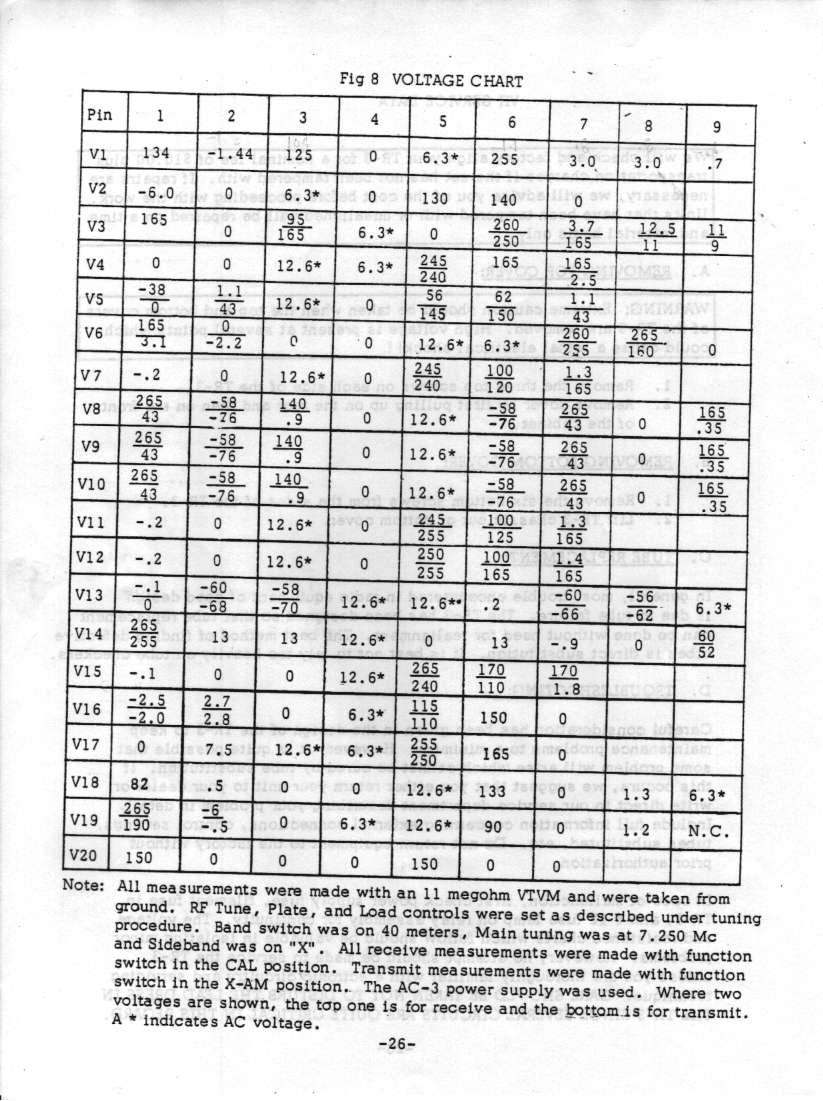 Fig 8 VOLTAGE CHART
Pin 1 2 3 4 5 6 7 8 9
V1 134 -1.44 125 0 6.3* 255 3.0 3.0 .7
V2 -6.0 0 6.3* 0 130 140 0
V3 165 0 95/165 6.3* 0 260/250 3.7/165 12.5/11 11/9
V4 0 0 12.6* 6.3* 245/240 165 165/2.5
V5 -38/0 1.1/43 12.6* 0 56/145 62/150 1.1/43
V6 165/3.1 0/-2.2 0 0 12.6* 6.3* 260/255 265/160 0
V7 -.2 0 12.6* 0 245/240 100/120 1.3/165
V8 265/43 -58/-76 140/.9 0 12.6* -58/-76 265/43 0 165/.35
V9 265/43 -58/-76 140/.9 0 12.6* -58/-76 265/43 0 165/.35
V10 265/43 -58/-76 140/.9 0 12.6* -58/-76 265/43 0 165/.35
V11 -.2 0 12.6* 0 245/255 100/125 1.3/165
V12 -.2 0 12.6* 0 250/255 100/165 1.4/165
V13 -.1/0 -60/-68 -58/-70 12.6* 12.6* .2 -60/-66 -56/-62 6.3*
V14 265/255 13 13 12.6* 0 13 .5 0 60/52
V15 -.1 0 0 12.6* 265/240 170/110 170/1.8
V16 -2.5/-2.0 2.7/2.8 0 6.3* 115/110 150 0
V17 0 7.5 12.6* 6.3* 255/250
V18 82 .5 0 0 12.6* 133 0 1.3 6.3*
V19 265/190 -6/-.5 0 6.3* 12.6* 90 0 1.2 N.C.
V20 150 0 0 0 150 0 0
Note: All measurements were made with an 11 megohm VTVM and were taken from
ground. RF Tune, Plate, and Load controls were set as described under tuning
procedure. Band switch was on 40 meters, Main tuning was at 7.250 Mc
and Sideband was on "X". All receive measurements were made with function
switch in the CAL position. Transmit measurements were made with function
switch in the X-AM position. The AC-3 power supply was used. Where two
voltages are shown, the top one is for receive and the bottom is for transmit.
A * indicates AC voltage.
-26-